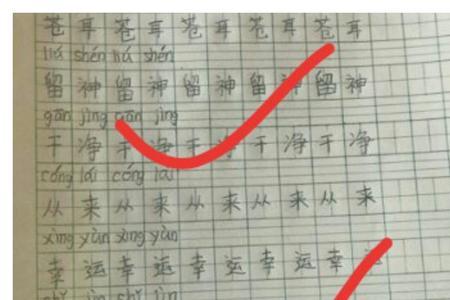 苍耳苍耳苍耳苍耳苍耳
liú shén liú shén
留神留神留神留神留神
gān jìng gān jìng
干净干净干净干净干净
cóng lái cóng lái
从来从来从来从来从来
xìng yùn xìng yùn
幸运幸运幸运幸运幸运
shǐ jìn shǐ jìn